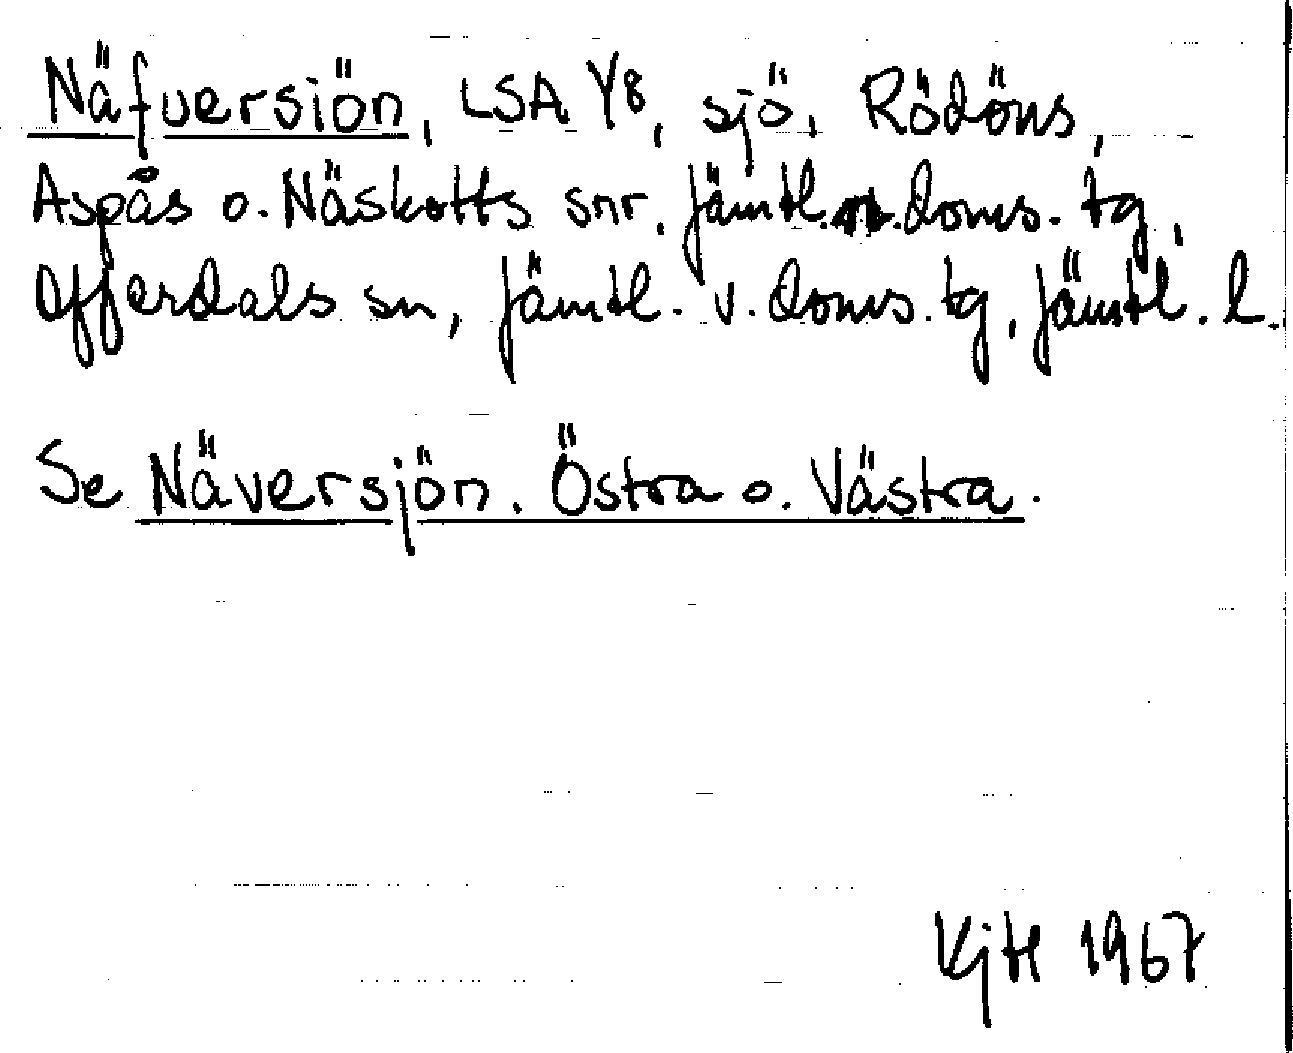 Näfversiön, LSA Y8, sjö, Rödöns,
Aspås o. Näskotts snr, Jämtl. n. doms. tg,
Offerdals sn, Jämtl. v. doms. tg, Jämtl. l.
Se Näversjön, Östra o. Västra.
KjH 1967